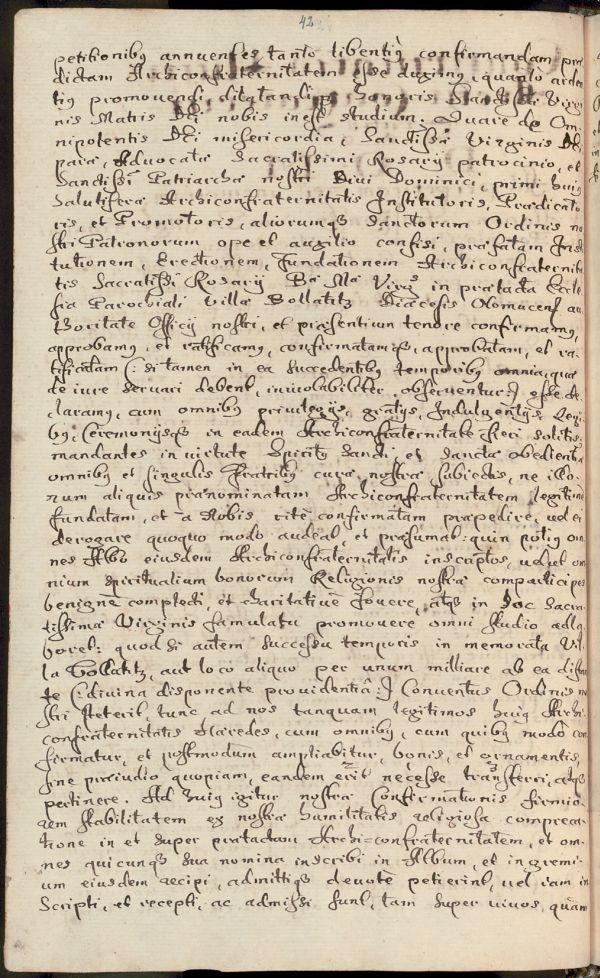 42
petitionibus annuentes tanto libentius confirmandam præ
dictam Archiconfraternitatem esse duximus, quanto arden
tius promovendi, dilatandique honoris Sanctissæ Virgi
nis Matris Dei nobis inest studium. Quare de Om
nipotentis Dei misericordia, Sanctissæ Virginis De
paræ, Advocatæ Sacratissimi Rosarij patrocinio, et
Sanctissi Patriarchæ nostri Divi Dominici, primi huius
Salutiferæ Archiconfraternitatis Institutoris, Prædicato
ris, et Promotoris, aliorumque Sanctorum Ordinis no
stri Patronorum ope et auxilio confisi, præfatam Insti
tutionem, Erectionem, Fundationem Archiconfraternita
tis Sacratissi Rosarij Bæ Mæ Virgs in prætacta Eccle
sia Parochiali Villæ Bollatitz Diæcesis Olomucens au
thoritate Officij nostri, et præsentium tenore confirmamus,
approbamus, et ratificamus, confirmatamque, approbatam, et ra
tificatam (: si tamen in ea succedentibus temporibus omnia, quæ
de iure servari debent, inviolabiliter observentur :) esse de
claramus, cum omnibus privilegijs, gratijs, Indulgentijs, Legi
bus, Ceremonijsque in eadem Archiconfraternitate fieri solitis;
mandantes in virtute Spiritus Sancti et Sanctæ obedientiæ
omnibus et singulis Fratribus curæ nostræ subiectis, ne illo
rum aliquis prænominatam Archiconfraternitatem legitime
fundatam, et à Nobis ritè confirmatam præpedire, vel ei
derogare quoquo modo audeat, et præsumat: quin potius om
nes Albo eiusdem Archiconfraternitatis inscriptos, velut om
nium spiritualium bonorum Religionis nostræ comparticipes
benignè complecti, et charitativè fovere, atque in hoc Sacra
tissimæ Virginis famulatu promovere omni studio adla
boret: quod si autem successu temporis in memorata Vil
la Bollatitz, aut loco aliquo per unum milliare ab ea distan
te (: divina disponente providentiâ :) Conventus Ordinis no
stri steterit, tunc ad nos tanquam legitimos huius Archi
confraternitatis Hæredes, cum omnibus, cum quibus modò con
firmatur, et postmodum ampliabitur, bonis, et ornamentis,
sine præiudio quopiam, eandem erit necesse transferri, atque
pertinere. Ad huius igitur nostræ Confirmationis firmio
rem stabilitatem ex nostræ humilitatis religiosa compreca
tione in et super prætactam Archi=confraternitatem, et om
nes quicunque sua nomina inscribi in Album, et in gremi
um eiusdem recipi, admittique devotè petierint, vel iam in
scripti, et recepti, ac admissi sunt, tam super vivos, quàm